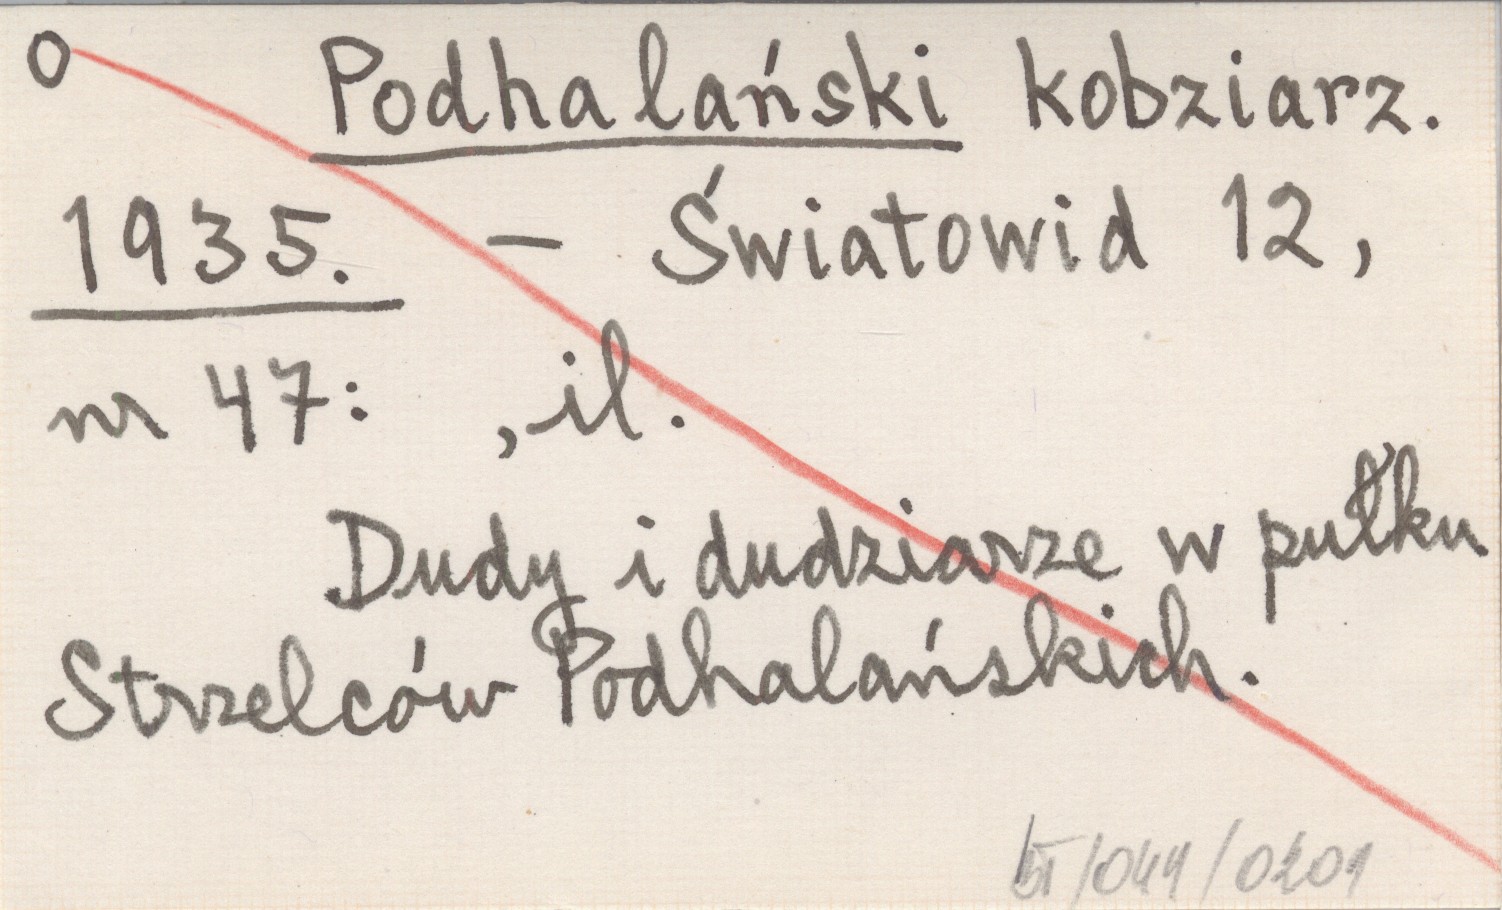 O Podhalański kobziarz.
1935. – Światowid 12,
nr 47: , il.
Dudy i dudziarze w pułku
Strzelców Podhalańskich.
/044/0201